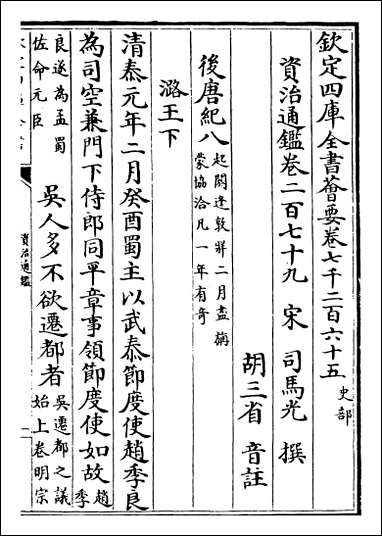 欽定四庫全書薈要卷七千二百六十五 史部
資治通鑑卷二百七十九 宋 司馬光 撰
胡三省 音註
後唐紀八 起閼逢敦牂二月盡旃
蒙協洽凡一年有奇
潞王下
清泰元年二月癸酉蜀主以武泰節度使趙季良
為司空兼門下侍郎同平章事領節度使如故 趙季
良遂為孟蜀
佐命元臣
吳人多不欲遷都者 吳遷都之議
始上卷明宗
資治通鑑